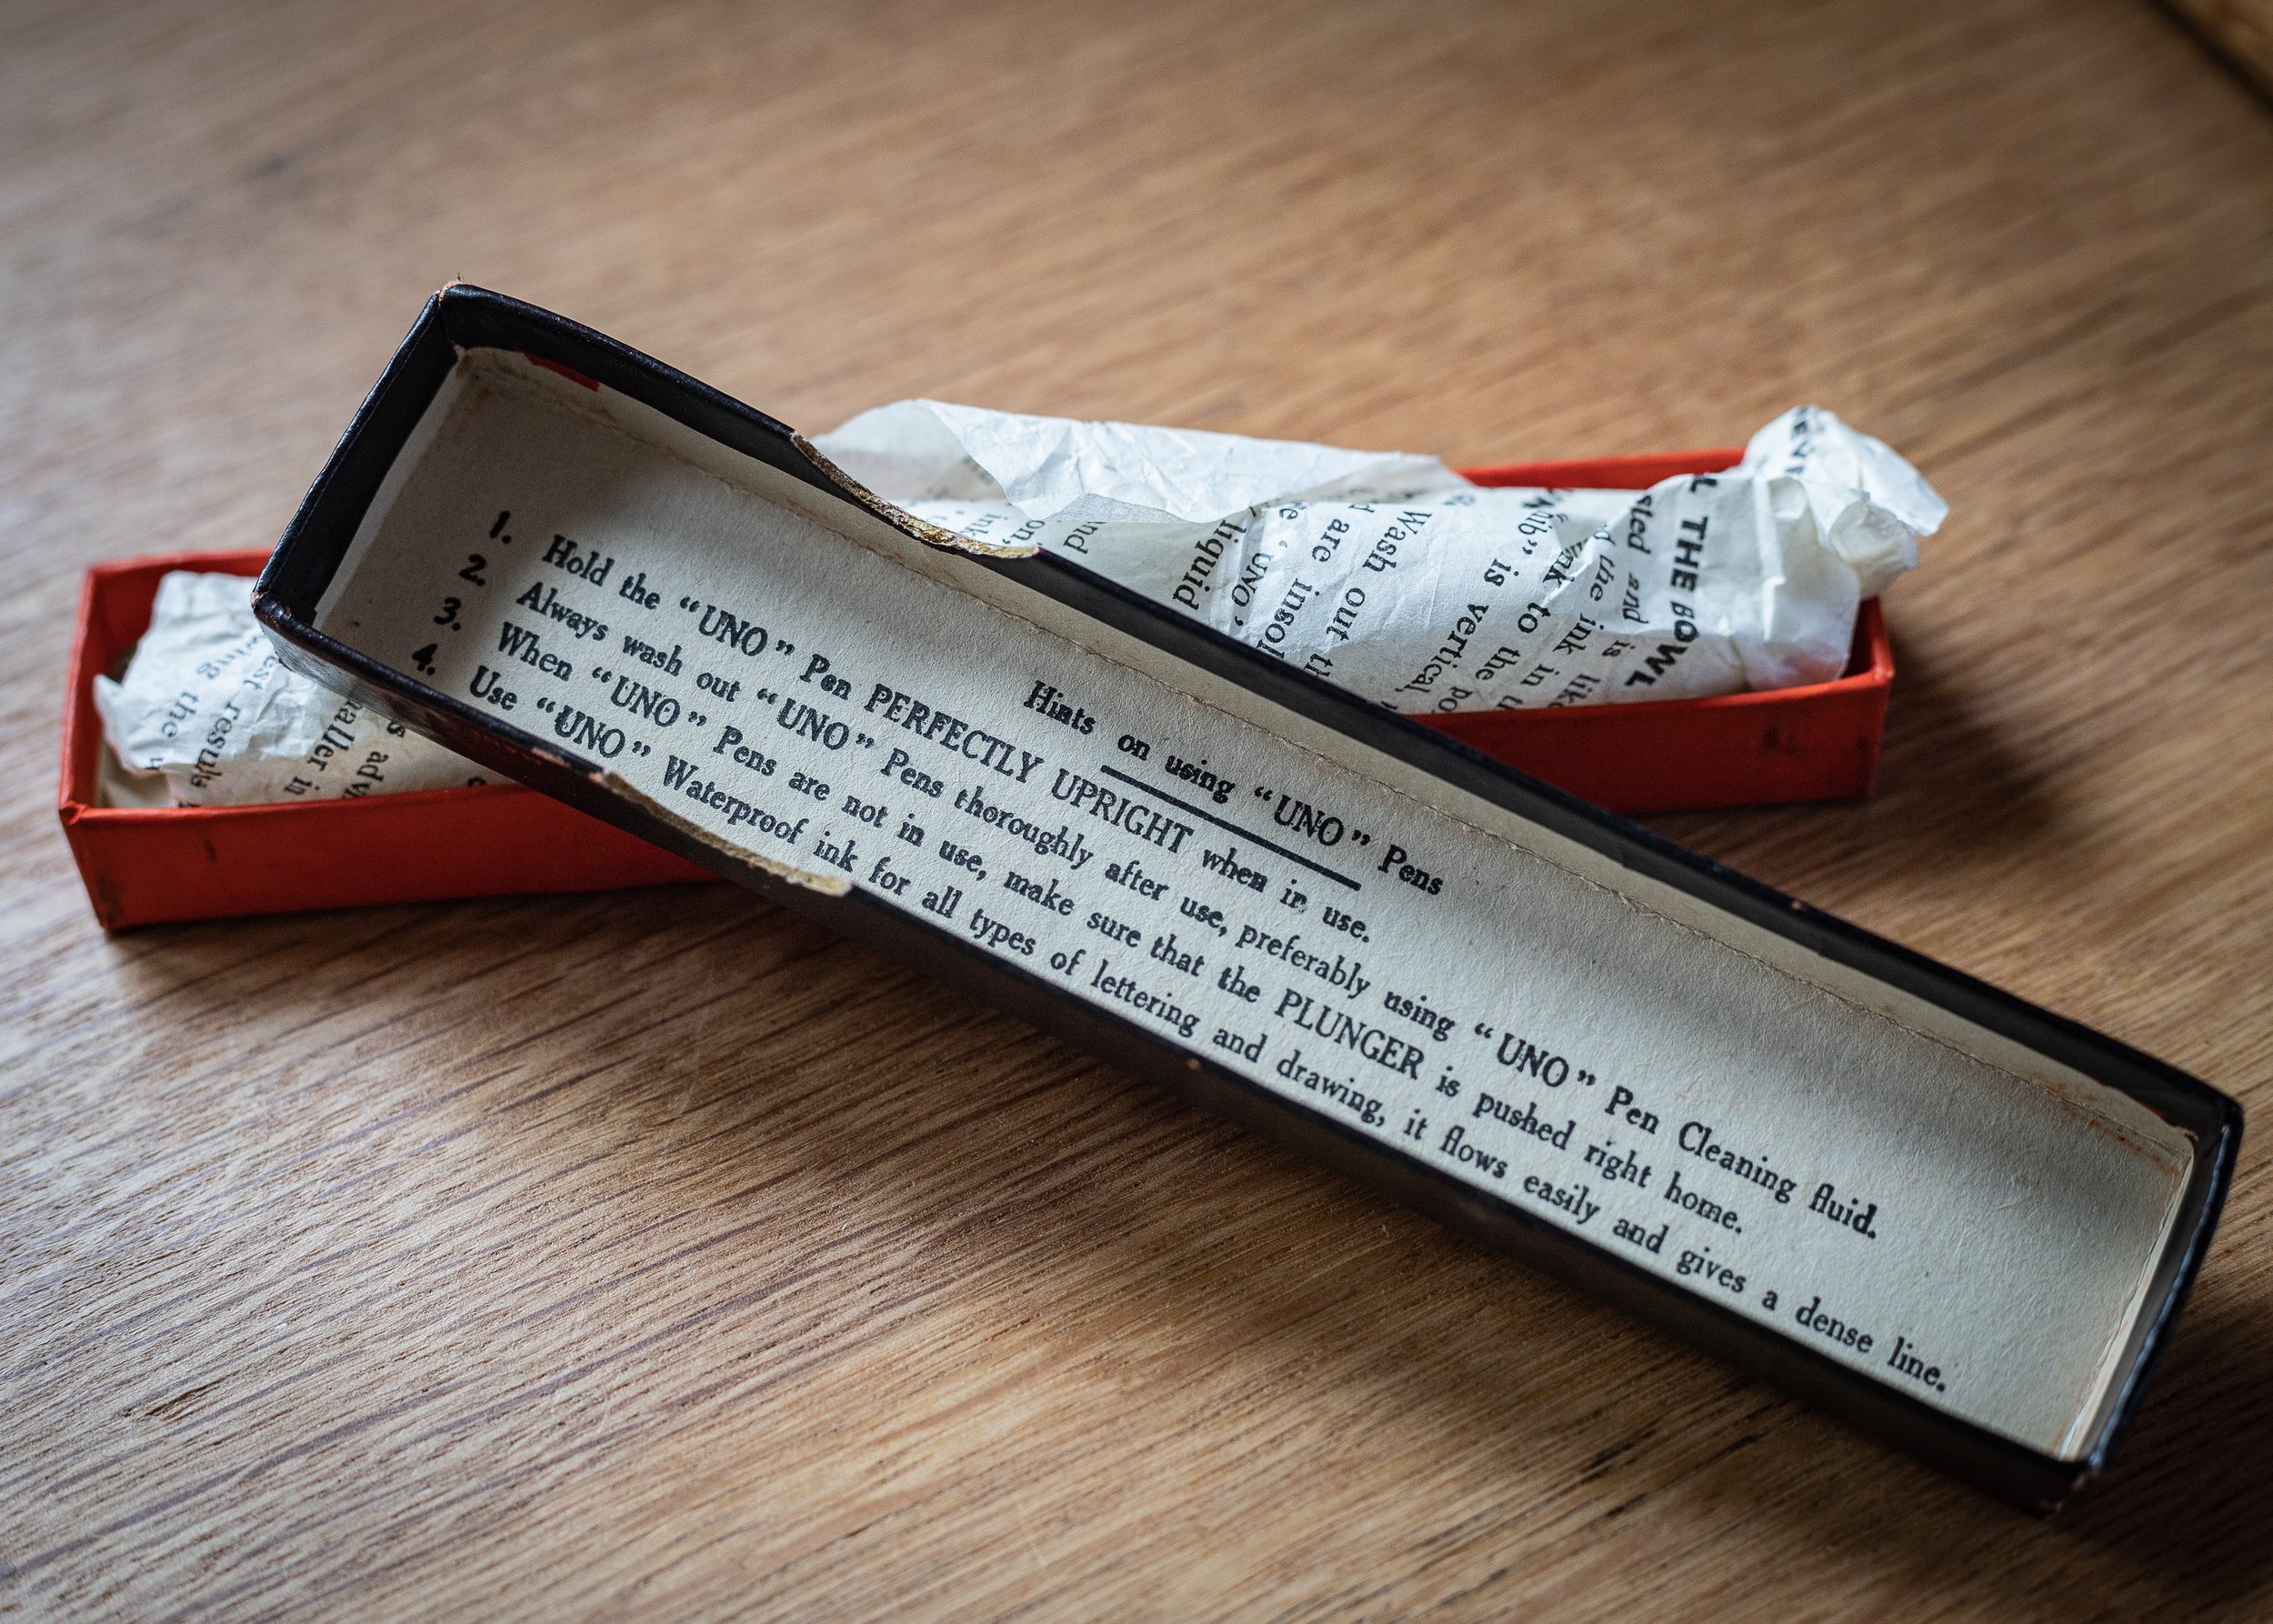 Hints on using “UNO” Pens
1. Hold the “UNO” Pen PERFECTLY UPRIGHT when in use.
2. Always wash out “UNO” Pens thoroughly after use, preferably using “UNO” Pen Cleaning fluid.
3. When “UNO” Pens are not in use, make sure that the PLUNGER is pushed right home.
4. Use “UNO” Waterproof ink for all types of lettering and drawing, it flows easily and gives a dense line.
THE BOWL
and is
the ink in
to the
is vertical,
Wash out
are
liquid
and
the
in